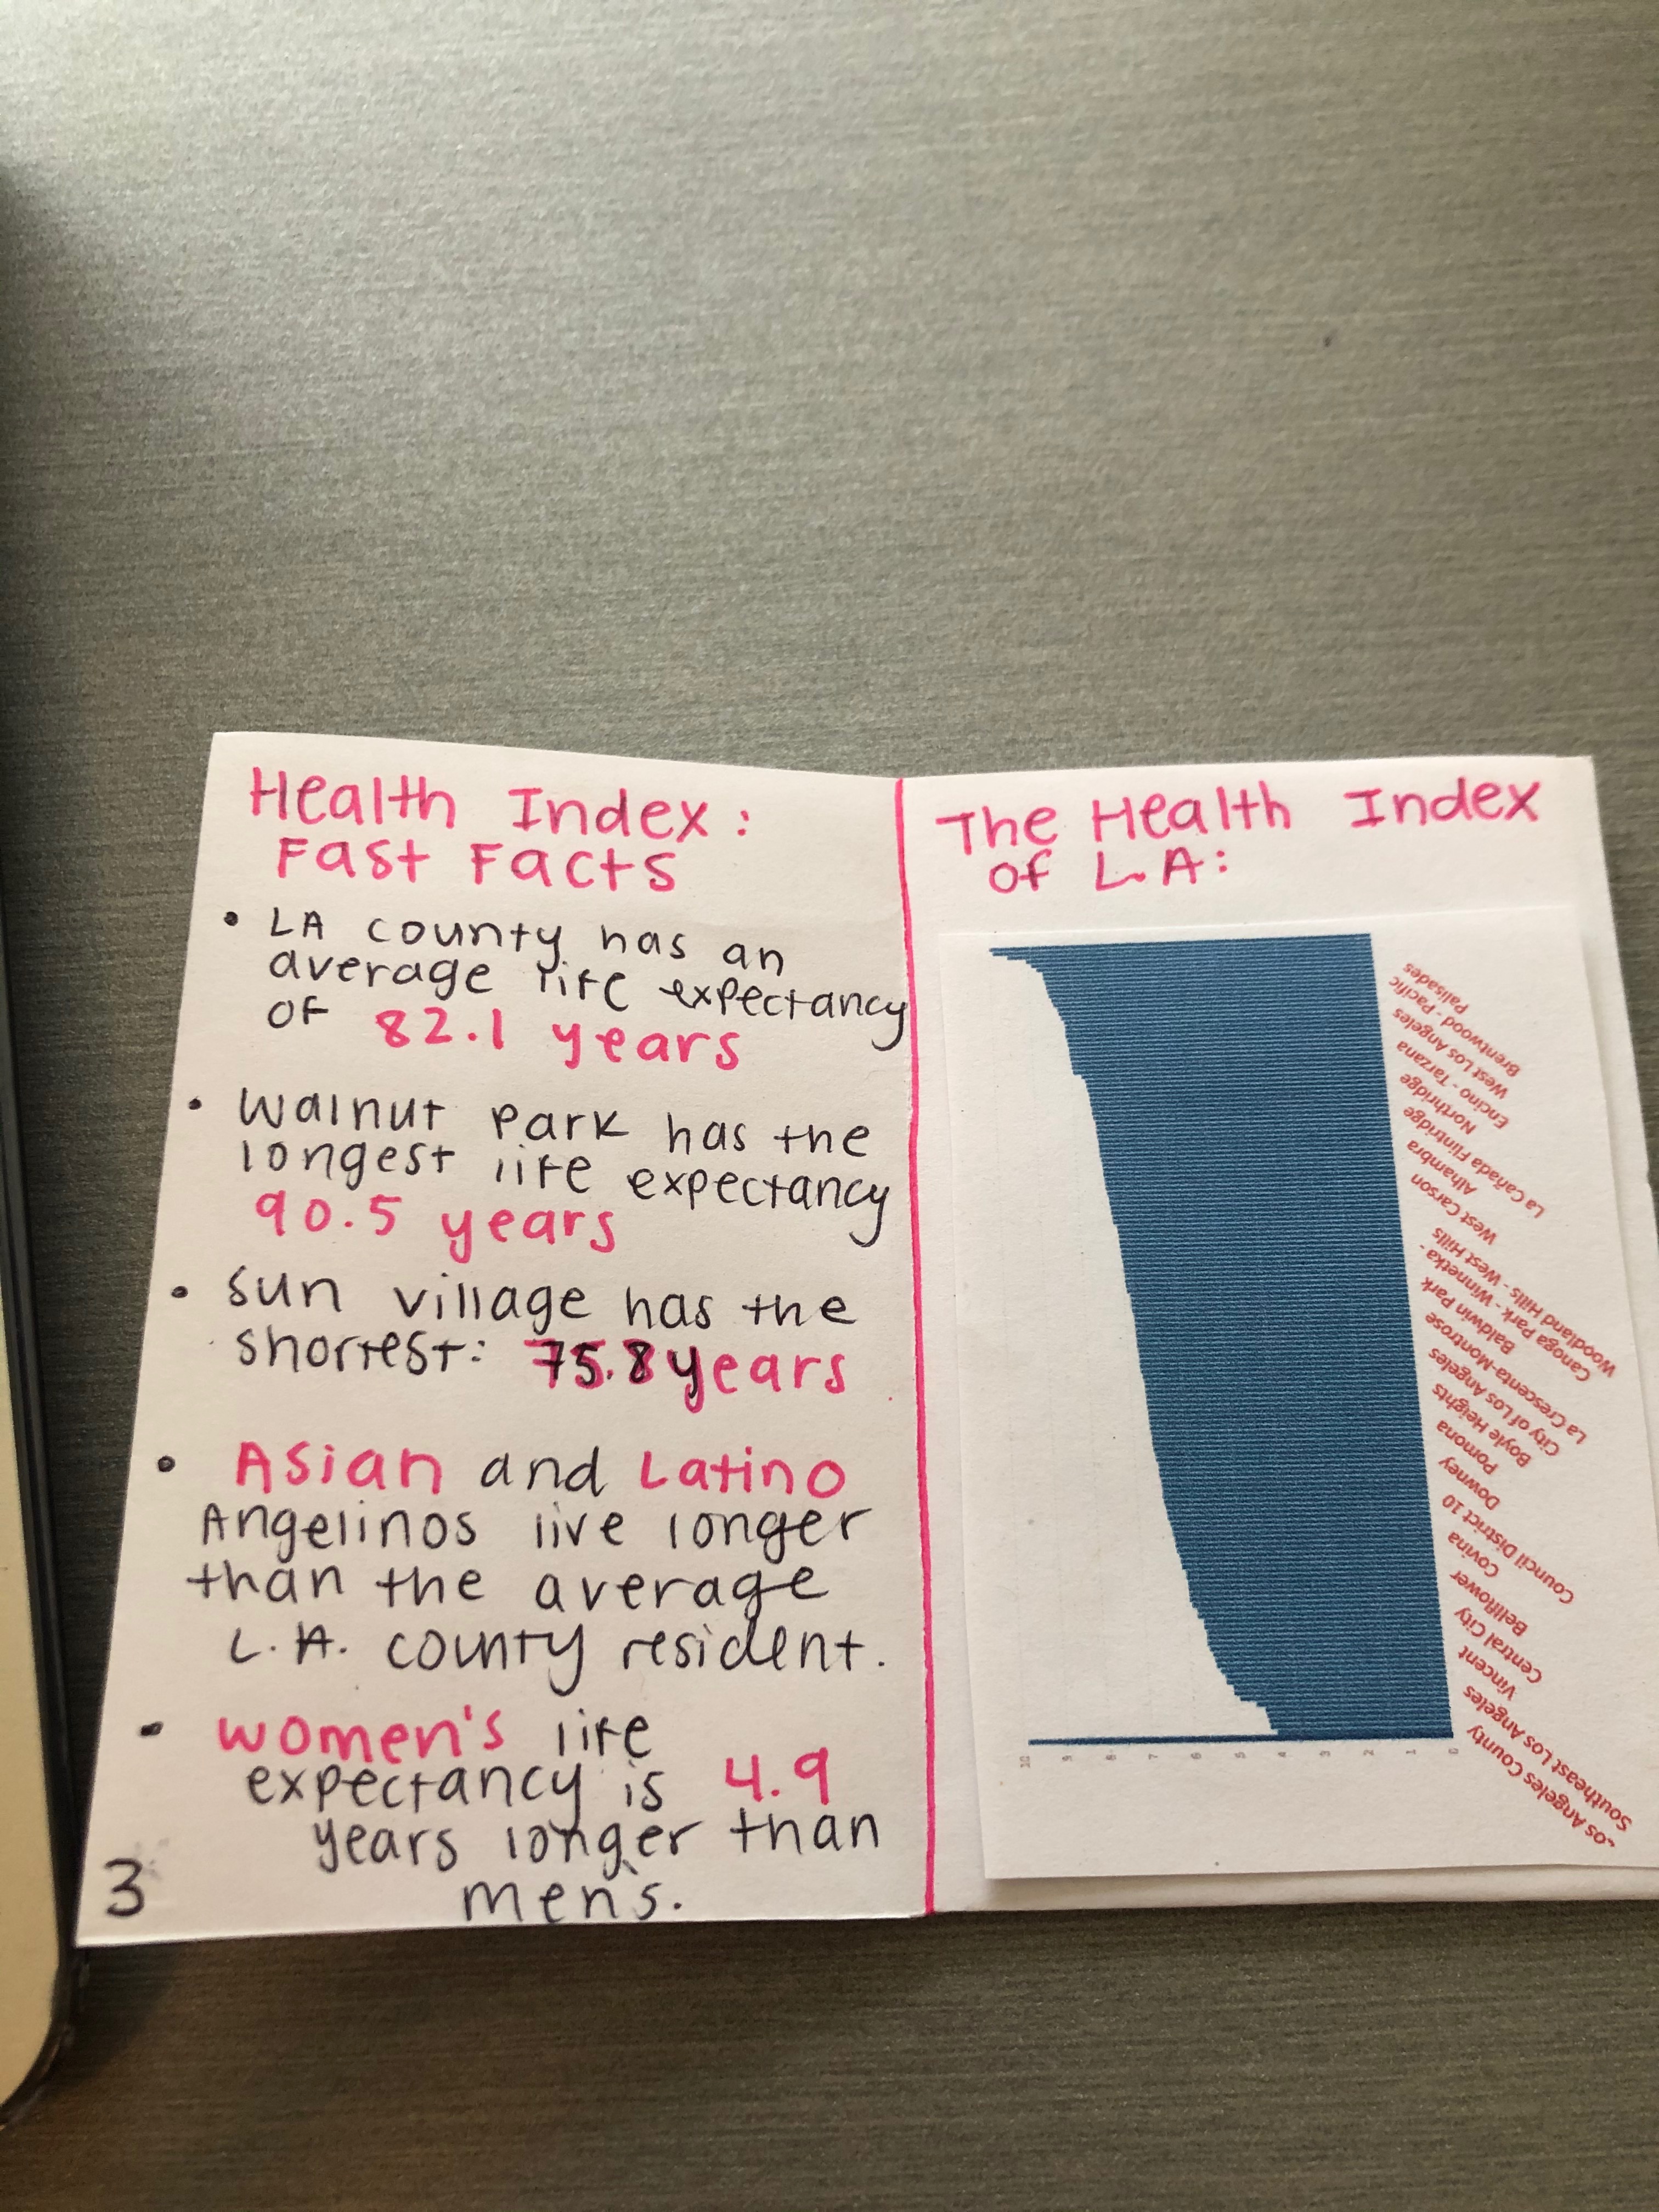 Health Index:
Fast Facts
• LA county has an
average life expectancy
of 82.1 years
• Walnut Park has the
longest life expectancy
90.5 years
• Sun village has the
shortest: 75.8 years
• Asian and Latino
Angelinos live longer
than the average
L.A. county resident.
• women's life
expectancy is 4.9
years longer than
men's.
3
The Health Index
of L.A:
Brentwood - Pacific
Palisades
West Los Angeles
Encino - Tarzana
Northridge
La Cañada Flintridge
Alhambra
West Carson
Canoga Park - Winnetka -
Woodland Hills - West Hills
Baldwin Park
La Crescenta-Montrose
City of Los Angeles
Boyle Heights
Pomona
Downey
Council District 10
Covina
Bellflower
Central City
Vincent
Southeast Los Angeles
Los Angeles County
10
9
8
7
6
5
4
3
2
1
0